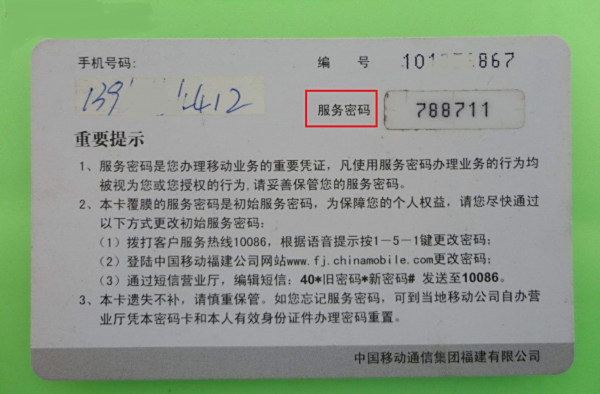 手机号码:
编 号 101 867
139 412
服务密码 788711
重要提示
1、服务密码是您办理移动业务的重要凭证，凡使用服务密码办理业务的行为均
被视为您或您授权的行为,请妥善保管您的服务密码。
2、本卡覆膜的服务密码是初始服务密码，为保障您的个人权益，请您尽快通过
以下方式更改初始服务密码:
（1）拨打客户服务热线10086，根据语音提示按1－5－1键更改密码;
（2）登陆中国移动福建公司网站www.fj.chinamobile.com更改密码;
（3）通过短信营业厅，编辑短信: 40*旧密码*新密码# 发送至10086。
3、本卡遗失不补，请慎重保管。如您忘记服务密码，可到当地移动公司自办营
业厅凭本密码卡和本人有效身份证件办理密码重置。
中国移动通信集团福建有限公司